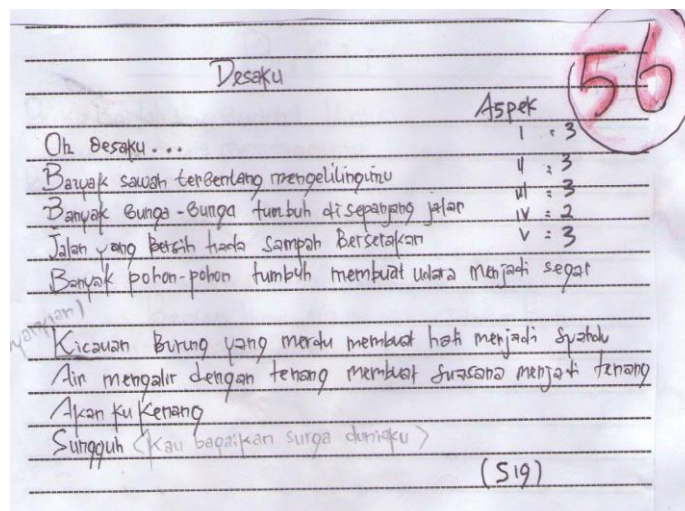 Desaku
56
Aspek
I : 3
Oh Desaku...
II : 3
Banyak sawah terbentang mengelilingimu
III : 3
Banyak Bunga-Bunga tumbuh disepanjang jalan
IV = 2
Jalan yang Bersih tiada Sampah Berserakan
V : 3
Banyak pohon-pohon tumbuh membuat udara menjadi segar
Kicauan Burung yang merdu membuat hati menjadi Syahdu
Air mengalir dengan tenang membuat Suasana menjadi tenang
Akan Ku Kenang
Sungguh (Kau bagaikan surga duniaku)
(S19)